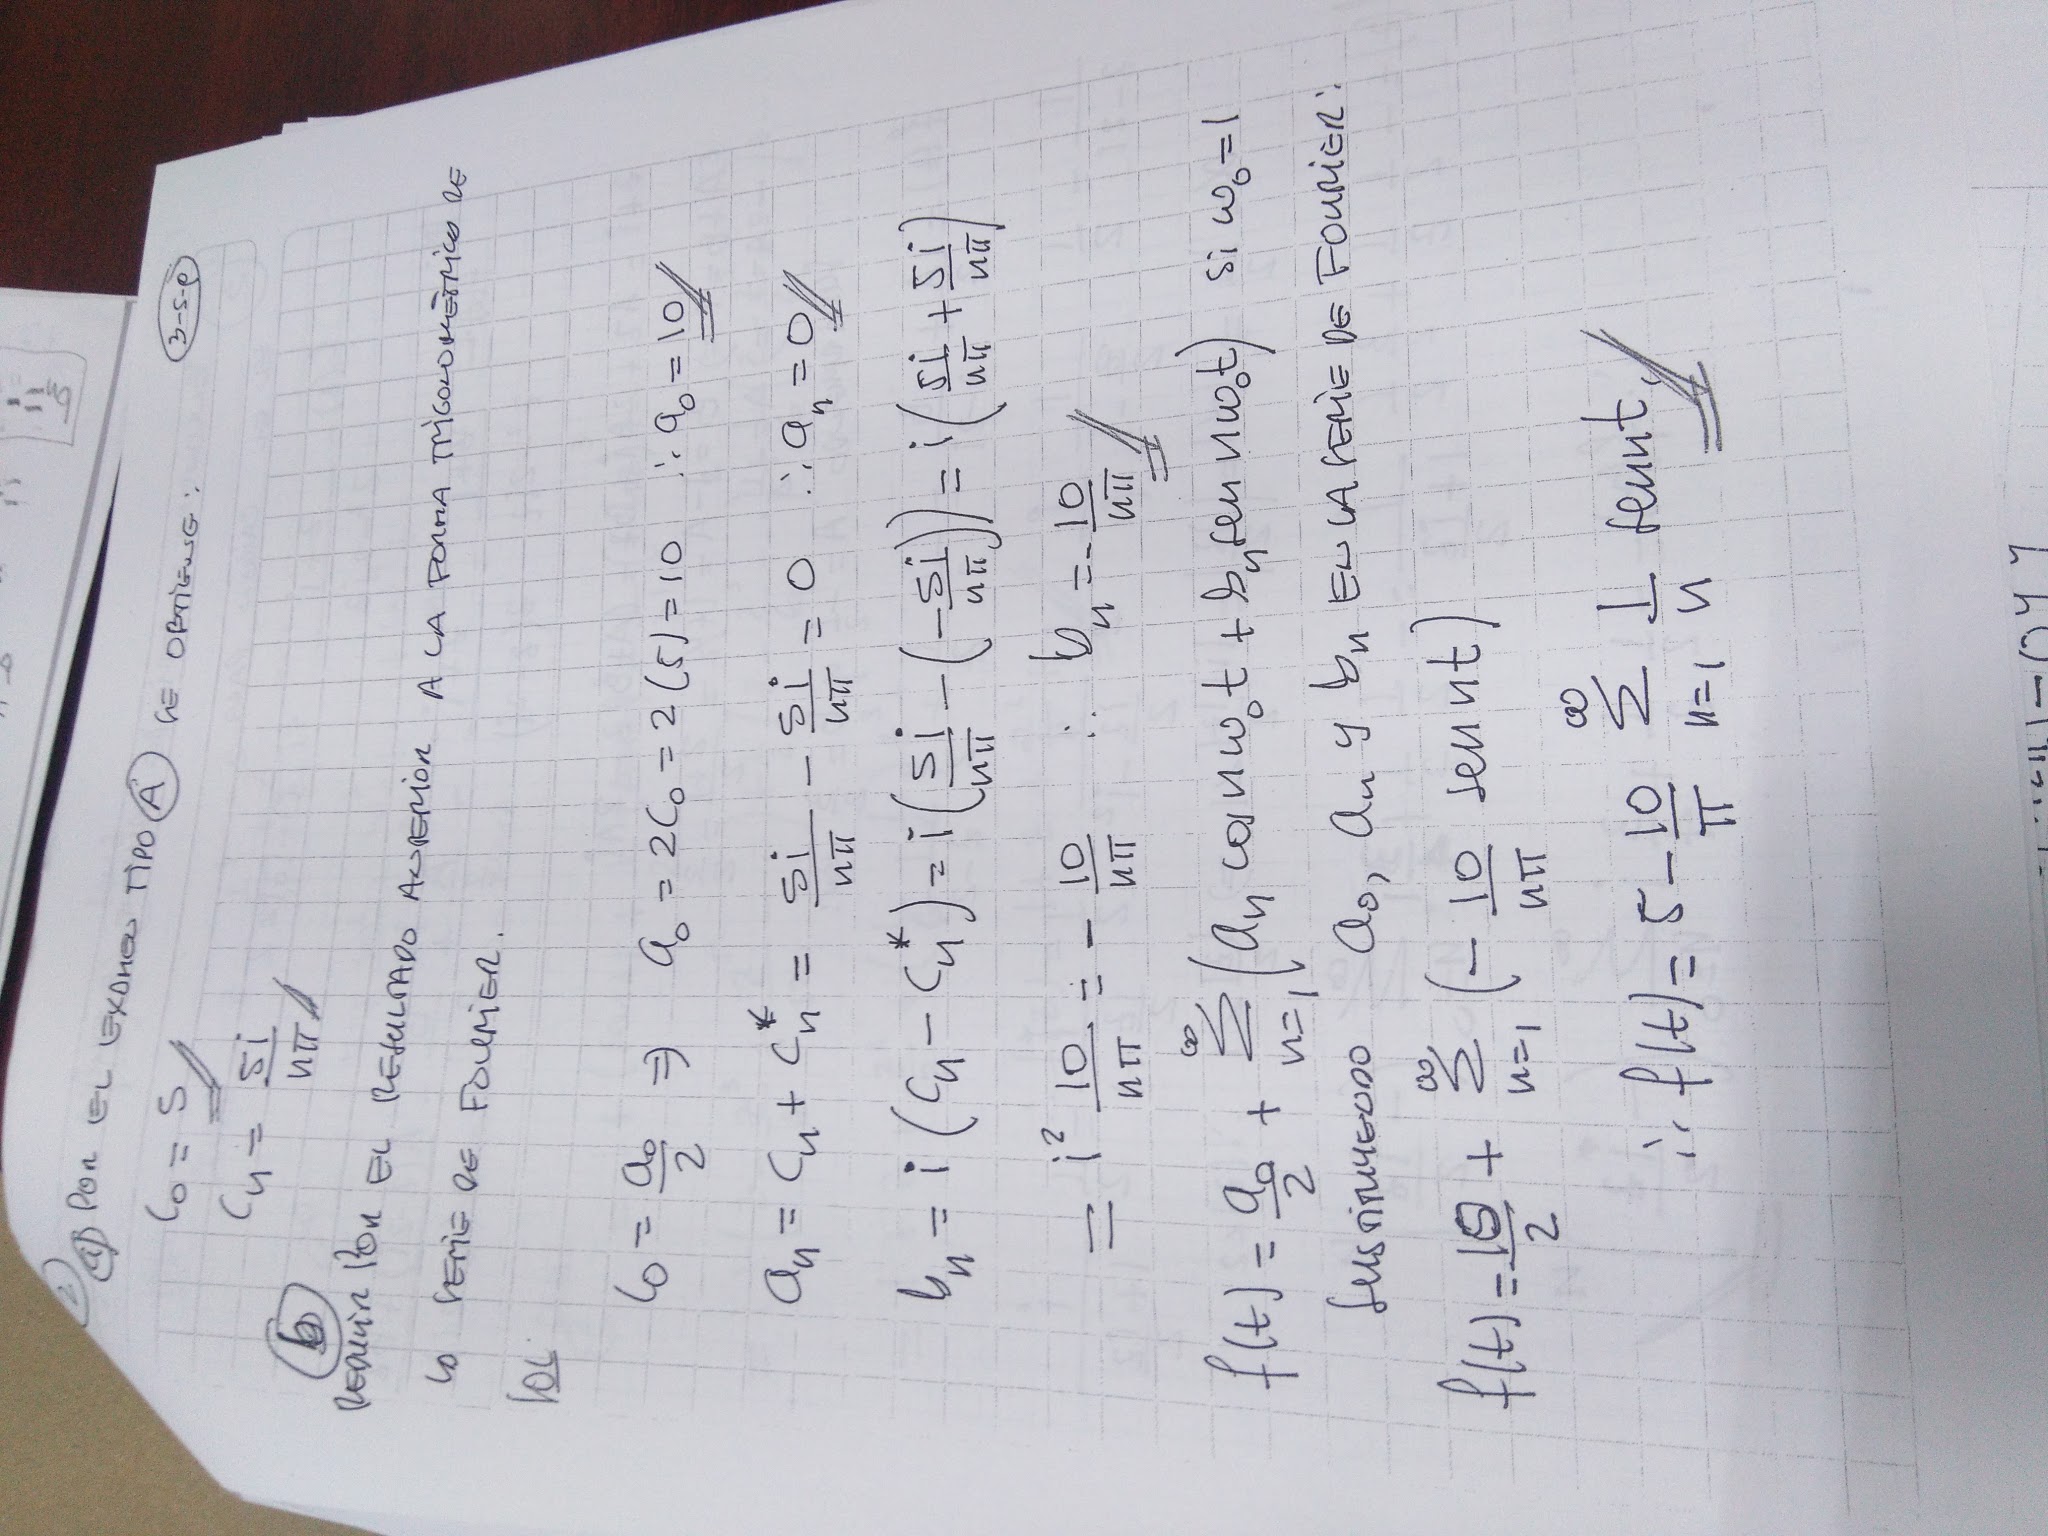 2 a) POR EL EXAMEN TIPO A SE OBTIENE: 3-S-P
C₀ = 5
Cₙ = 5i/nπ
b
REDUCIR POR EL RESULTADO ANTERIOR A LA FORMA TRIGONOMÉTRICA DE
LA SERIE DE FOURIER.
SOL
C₀ = a₀/2 ⇒ a₀ = 2C₀ = 2(5) = 10 ∴ a₀ = 10
aₙ = Cₙ + Cₙ* = 5i/nπ - 5i/nπ = 0 ∴ aₙ = 0
bₙ = i(Cₙ - Cₙ*) = i(5i/nπ - (-5i/nπ)) = i(5i/nπ + 5i/nπ)
= i² 10/nπ = - 10/nπ ∴ bₙ = - 10/nπ
f(t) = a₀/2 + ∑ₙ₌₁^∞ (aₙ cos nω₀t + bₙ sen nω₀t) si ω₀ = 1
SUSTITUYENDO a₀, aₙ y bₙ EN LA SERIE DE FOURIER:
f(t) = 10/2 + ∑ₙ₌₁^∞ (- 10/nπ sen nt)
∴ f(t) = 5 - 10/π ∑ₙ₌₁^∞ 1/n sen nt